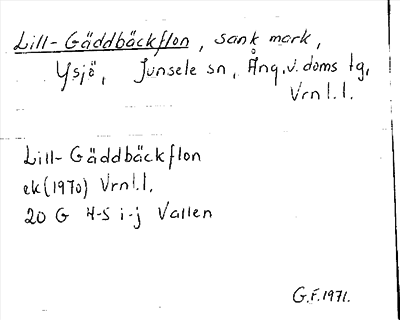 Lill-Gäddbäckflon, sank mark,
Ysjö, Junsele sn, Ång.v.doms tg,
Vrnl.l.
Lill-Gäddbäckflon
ek(1970) Vrnl.l.
20 G 4-5 i-j Vallen
G.F.1971.